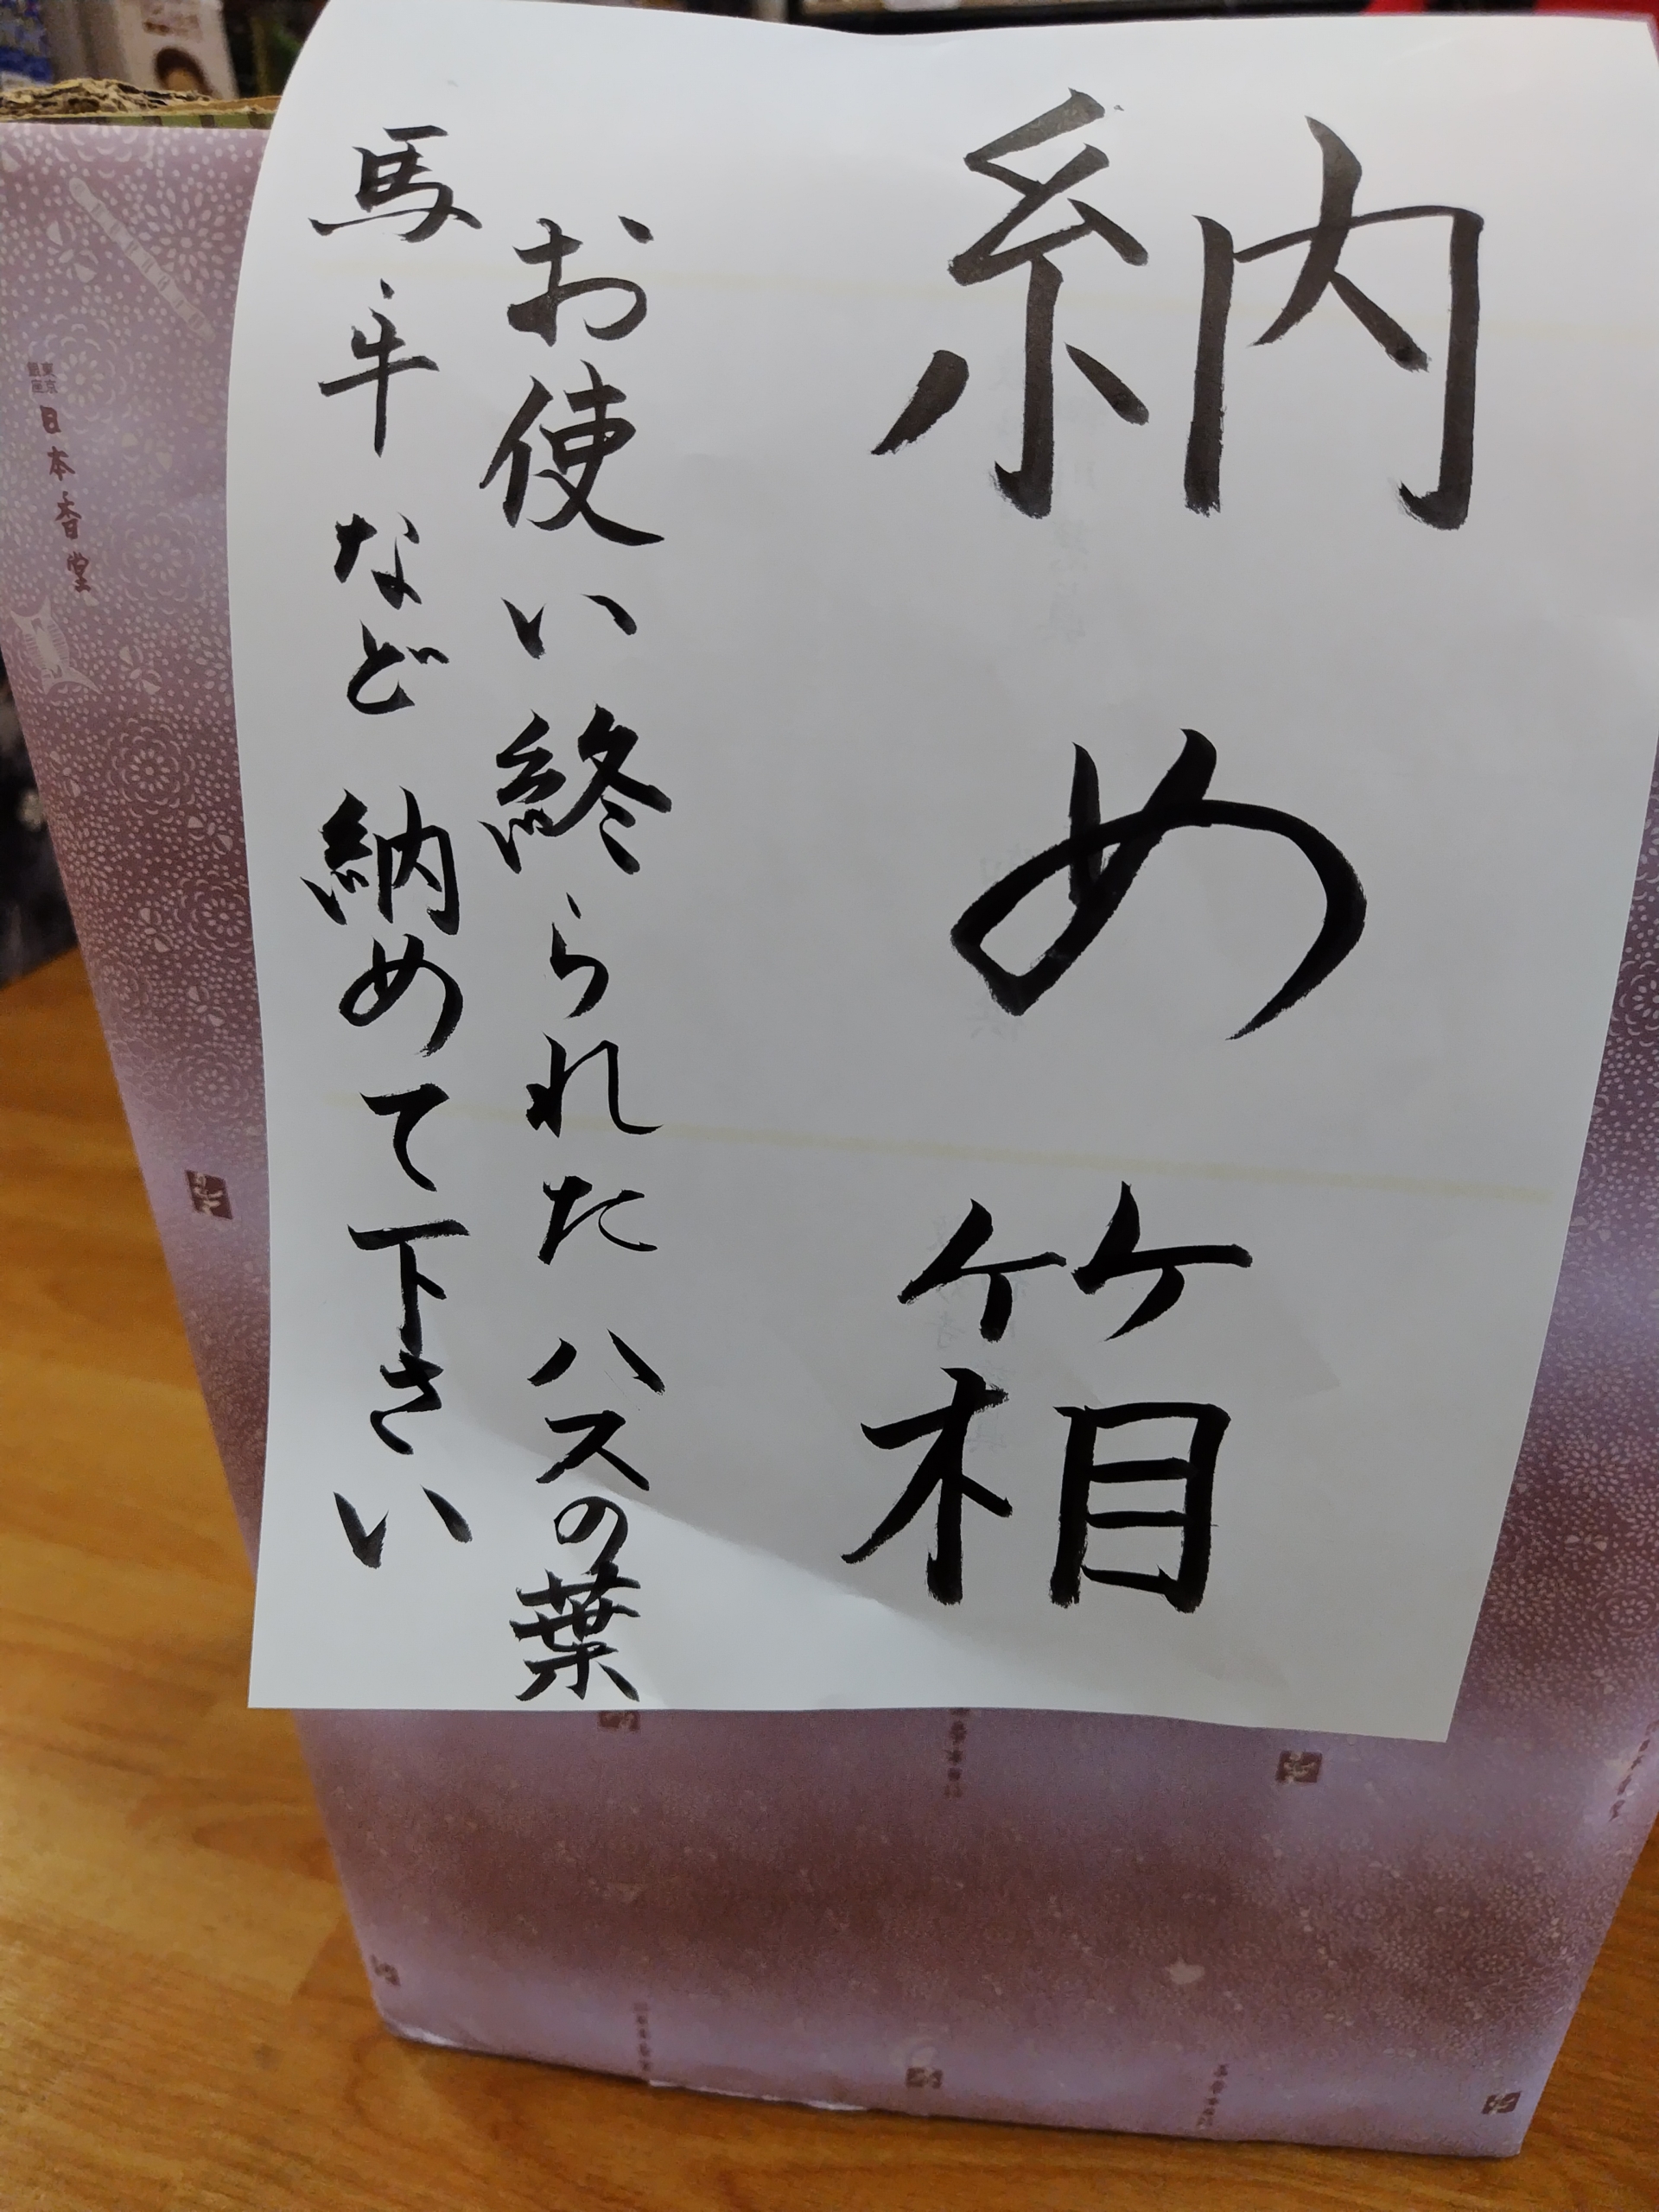 納め箱
お使い終られた ハスの葉
馬 牛 など 納めて下さい
東京
銀座
日本香堂